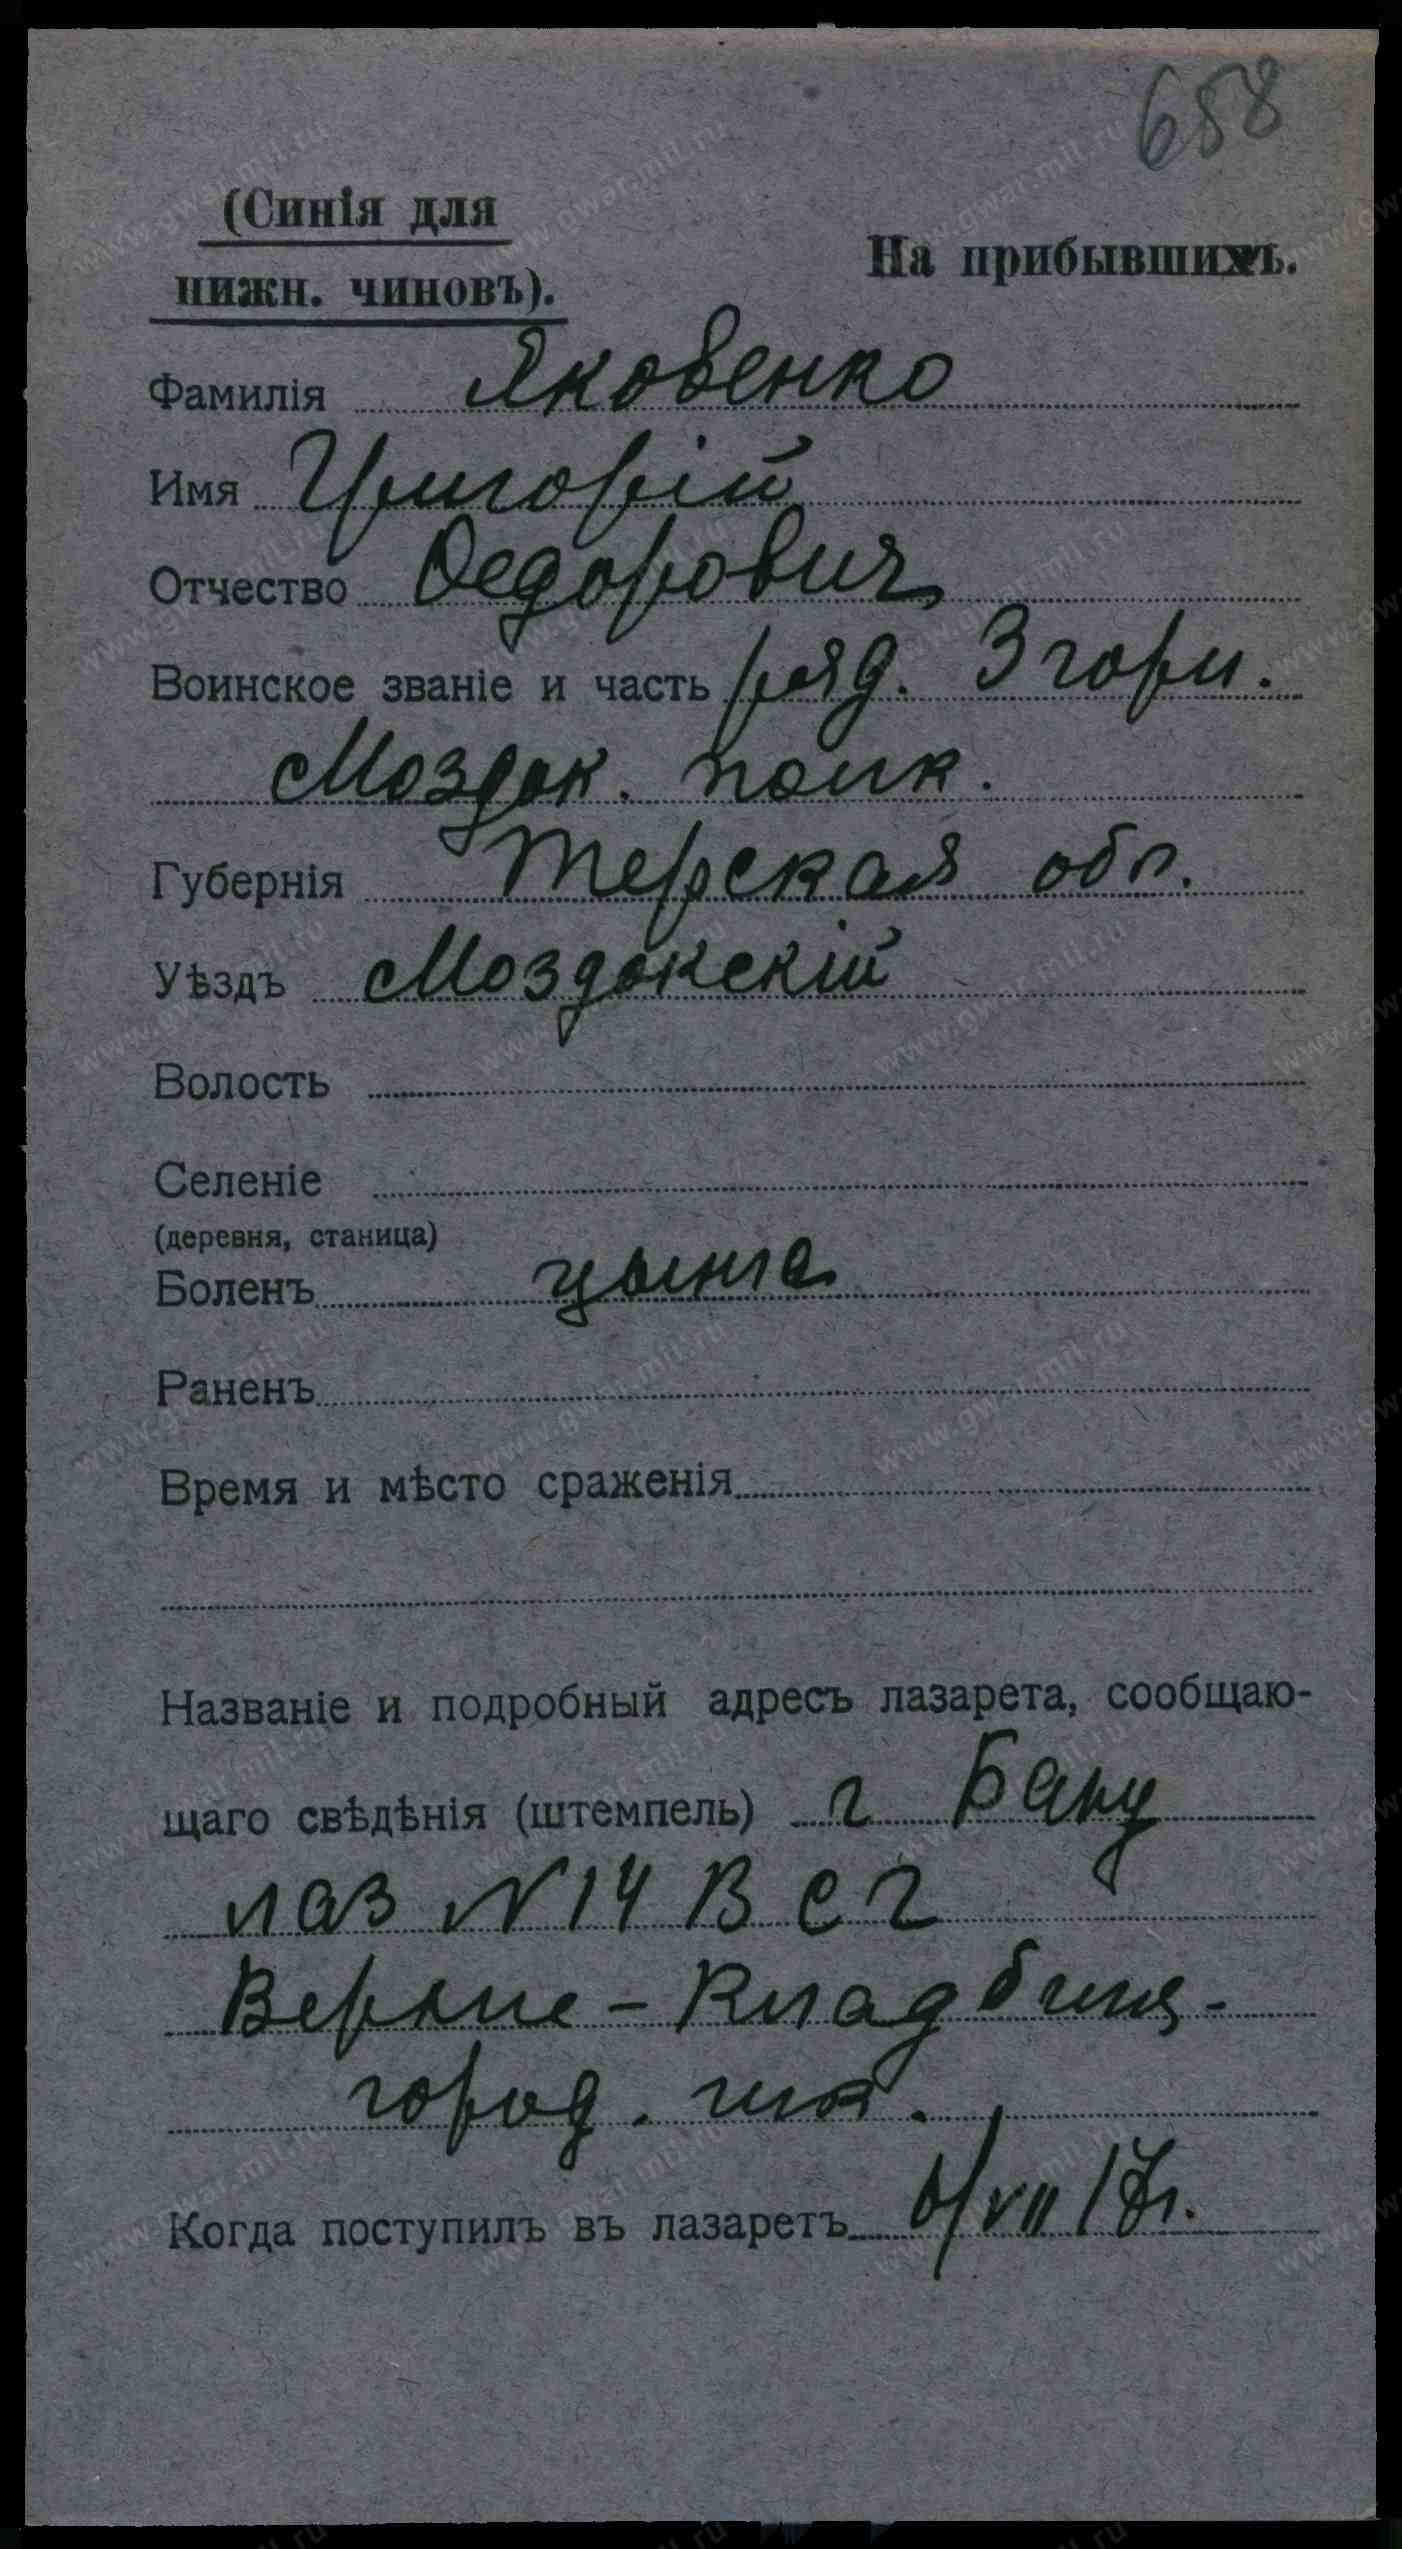 658
(Синія для
нижн. чиновъ).
На прибывшихъ.
Фамилія Яковенко
Имя Григорій
Отчество Ѳедорович
Воинское званіе и часть ряд. 3 горн.
Моздок. полк.
Губернія Терская обл.
Уѣздъ Моздокскій
Волость
Селеніе
(деревня, станица)
Боленъ цынга
Раненъ
Время и мѣсто сраженія
Названіе и подробный адресъ лазарета, сообщаю-
щаго свѣдѣнія (штемпель) г Баку
лаз N 14 В С Г
Верхне-Кладбищ-
город. шк.
Когда поступилъ въ лазаретъ 6/VII 17г.
www.gwar.mil.ru